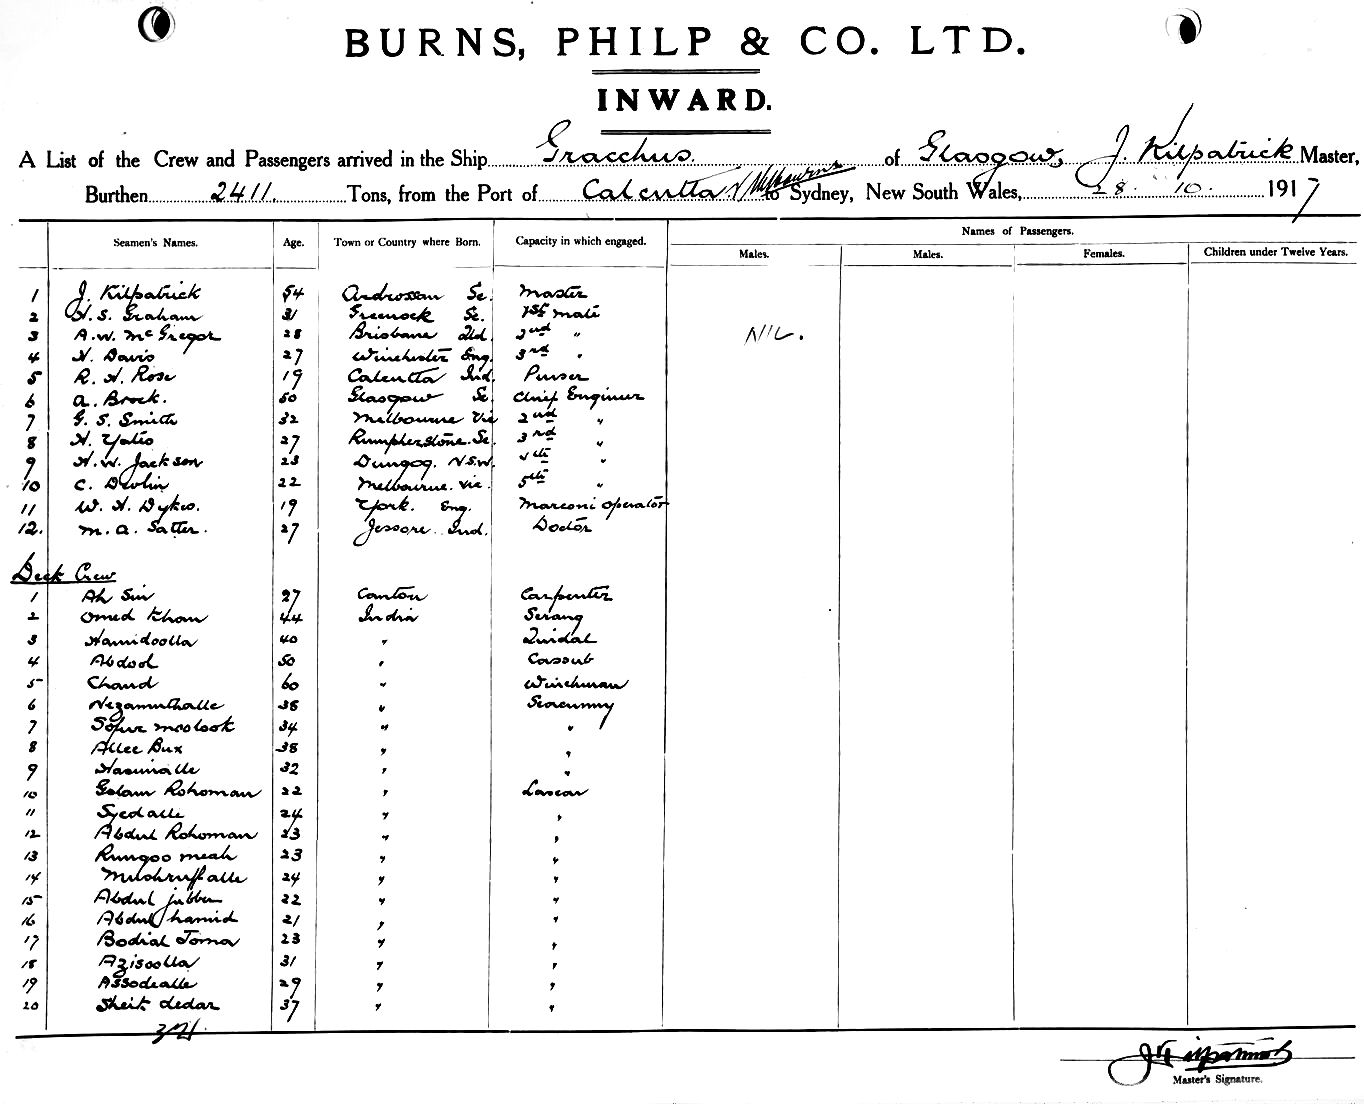 BURNS, PHILP & CO. LTD.
INWARD.
A List of the Crew and Passengers arrived in the Ship Gracchus. of Glasgow, J. Kilpatrick Master,
Burthen 2411. Tons, from the Port of Calcutta v Melbourne to Sydney, New South Wales, 28. 10. 1917
Names of Passengers.
Seamen's Names. Age. Town or Country where Born. Capacity in which engaged. Males. Males. Females. Children under Twelve Years.
1 J. Kilpatrick 54 Androssan Sc. Master
2 H. S. Graham 31 Greenock Sc. 1st mate
3 A. W. McGregor 28 Brisbane Qld. 2nd " NIL.
4 H. Davis 27 Winchester Eng. 3rd "
5 R. H. Rose 19 Calcutta Ind. Purser
6 A. Brock. 50 Glasgow Sc Chief Engineer
7 G. S. Smith 32 Melbourne Vic 2nd "
8 H. Yates 27 Sc. 3rd "
9 H. W. Jackson 23 Dungog. N.S.W. 4th "
10 C. Devlin 22 Melbourne. Vic. 5th "
11 W. H. Dykes. 19 York. Eng. Marconi operator
12. M. A. Satter. 27 Jessore. Ind. Doctor
Deck Crew
1 Ah Sin 27 Canton Carpenter
2 Omed Khan 44 India Serang
3 Hamidoolla 40 "
4 Abdool 50 " Cassub
5 Chand 60 " Winchman
6 Nezamuthalle 38 " Seacunny
7 34 " "
8 Allee Bux 38 " "
9 32 " "
10 Golam Rohoman 22 " Lascar
11 Syedalle 24 " "
12 Abdul Rohoman 23 " "
13 Rungoo meah 23 " "
14 24 " "
15 Abdul jubber 22 " "
16 Abdul hamid 21 " "
17 Bodial Toma 23 " "
18 Azisoolla 31 " "
19 Assodealle 29 " "
20 Sheik dedar 37 " "
J Kilpatrick
Master's Signature.